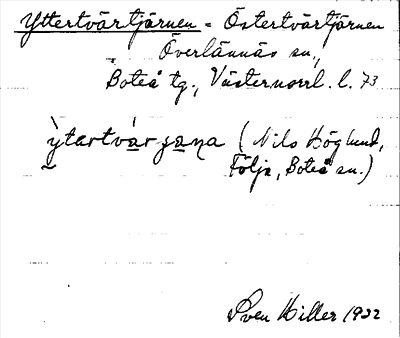 Yttertvärtjärnen = Östertvärtjärnen
Överlännäs sn,
Boteå tg., Västernorrl. l. 73
ỳtartvár ʃana (Nils Höglund,
Följa, Boteå sn.)
Sven Hiller 1932